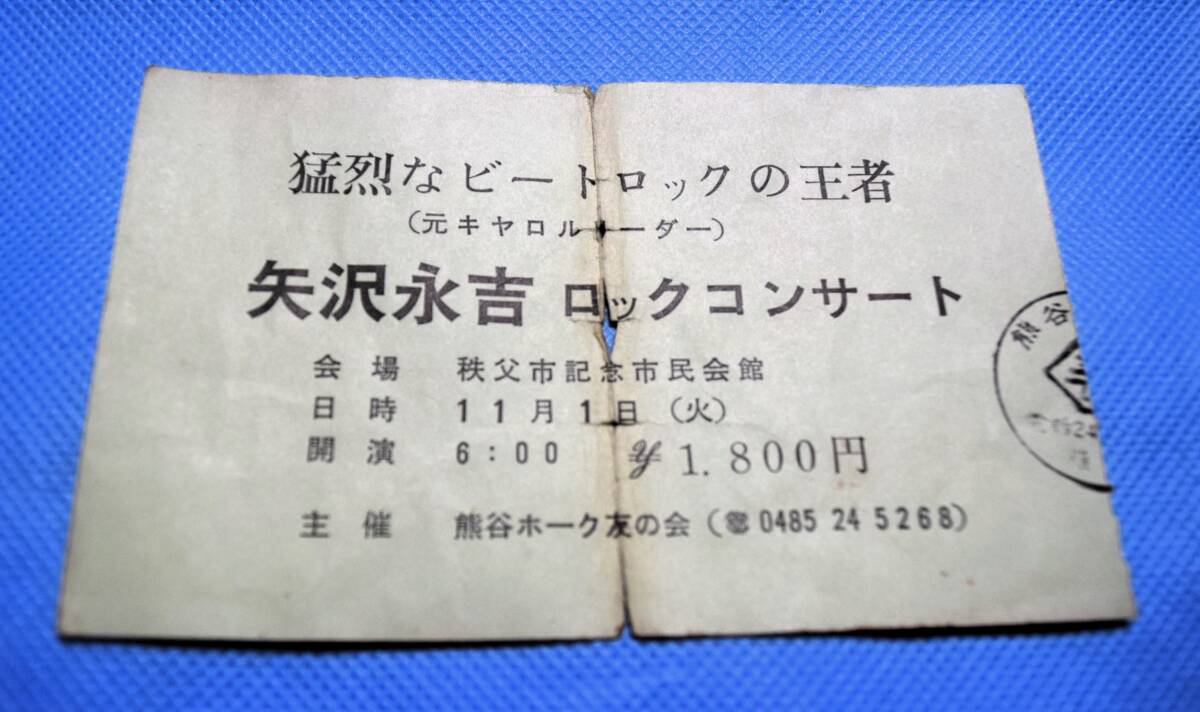 猛烈なビートロックの王者
(元キヤロルリーダー)
矢沢永吉 ロックコンサート
会場 秩父市記念市民会館
日時 11月1日 (火)
開演 6:00 ¥1.800円
主催 熊谷ホーク友の会 (☎0485 24 5268)
熊谷